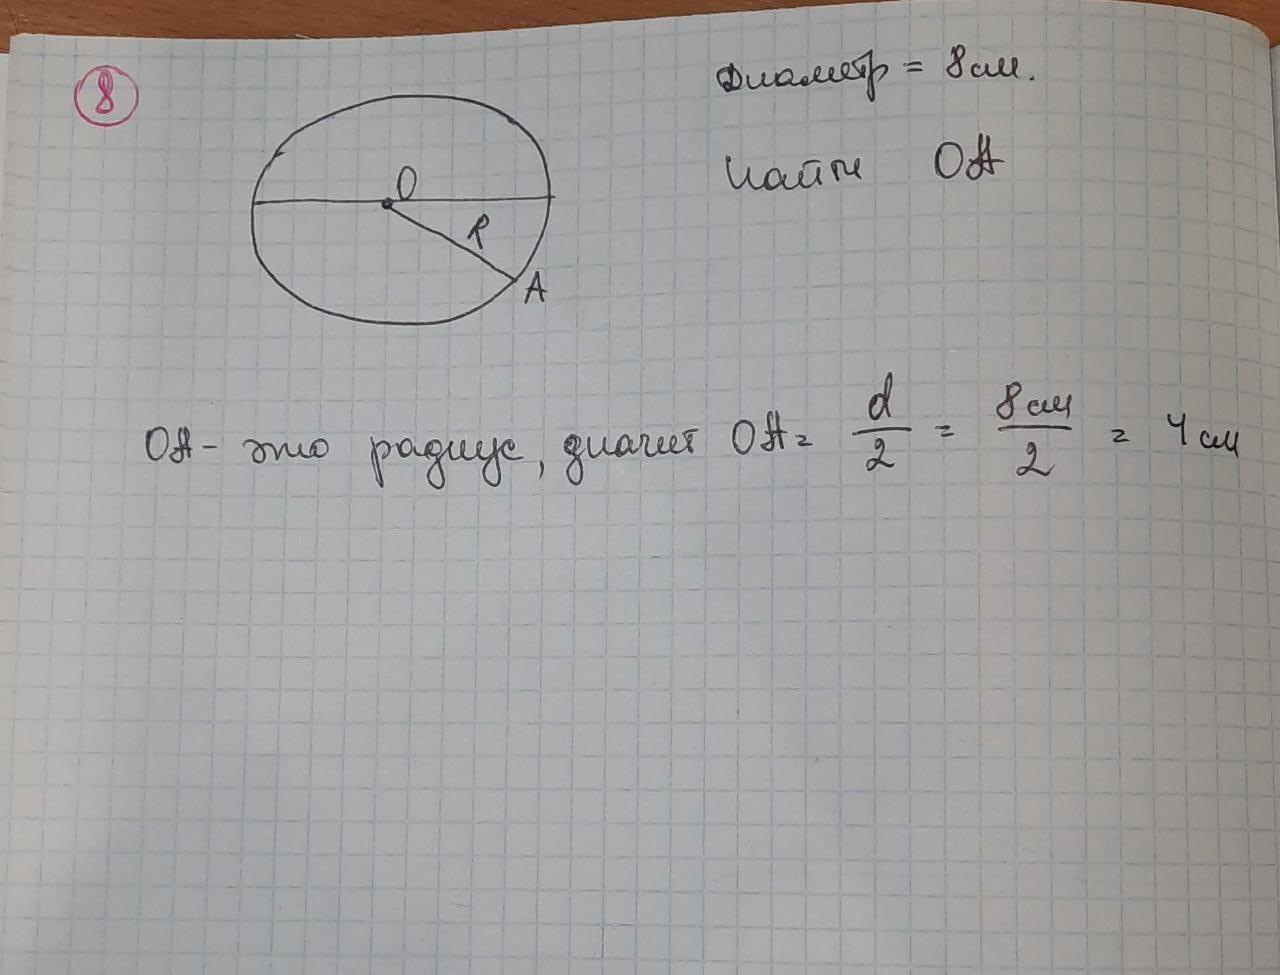 8
Диаметр = 8см.
Найти OA
O
R
A
OA - это радиус, значит OA = d/2 = 8см/2 = 4см